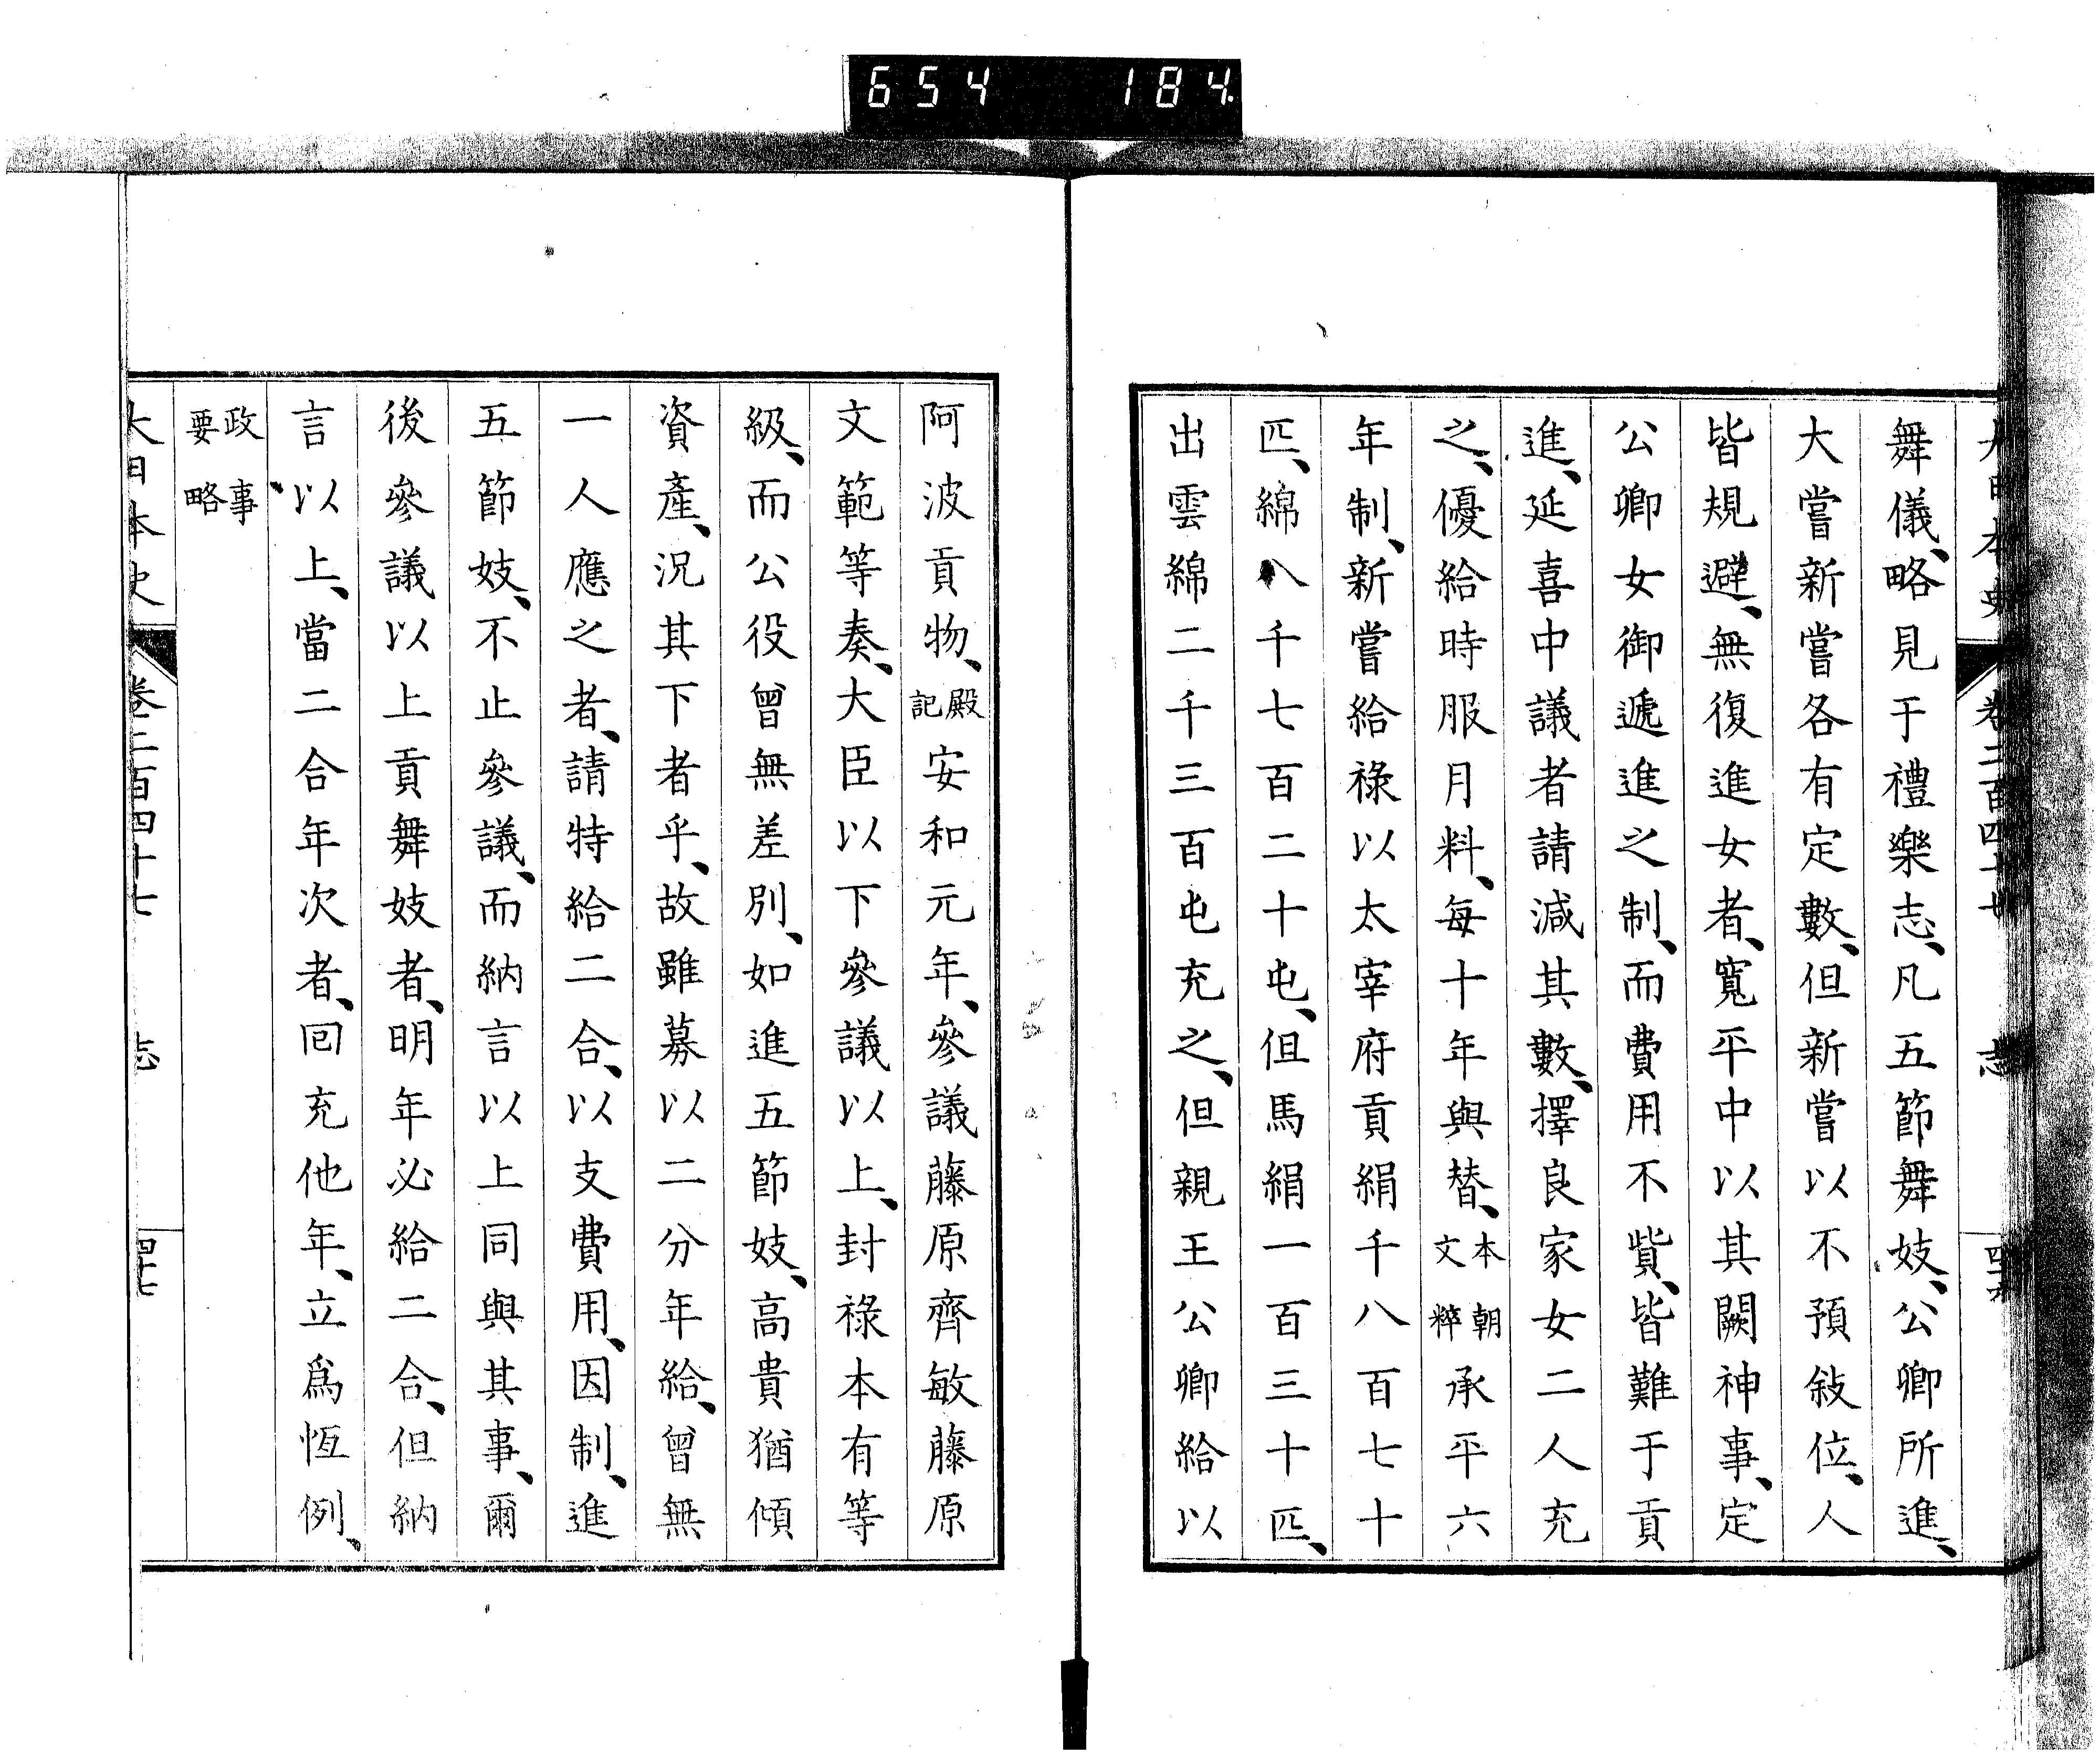 654 184
大日本史 卷二百四十七 志 四十六
舞儀、略見于禮樂志、凡五節舞妓、公卿所進、
大嘗新嘗各有定數、但新嘗以不預敍位、人
皆規避、無復進女者、寬平中以其闕神事、定
公卿女御遞進之制、而費用不貲、皆難于貢
進、延喜中議者請減其數、擇良家女二人充
之、優給時服月料、每十年與替、本朝文粹承平六
年制、新嘗給祿以太宰府貢絹千八百七十
匹、綿八千七百二十屯、但馬絹一百三十匹、
出雲綿二千三百屯充之、但親王公卿給以
阿波貢物、殿記安和元年、參議藤原齊敏藤原
文範等奏、大臣以下參議以上、封祿本有等
級、而公役曾無差別、如進五節妓、高貴猶傾
資產、況其下者乎、故雖募以二分年給、曾無
一人應之者、請特給二合、以支費用、因制、進
五節妓、不止參議、而納言以上同與其事、爾
後參議以上貢舞妓者、明年必給二合、但納
言以上、當二合年次者、回充他年、立爲恆例、
政事要略
大日本史 卷二百四十七 志 四十七